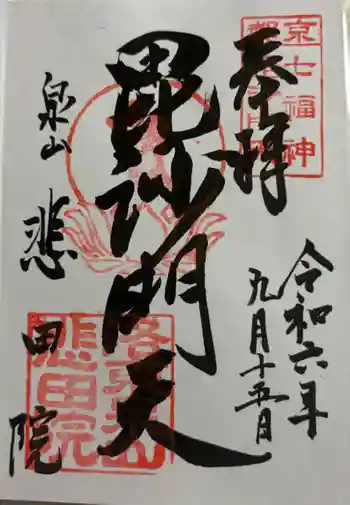 奉拝
京七福神
令和六年
九月十五日
毘沙門天
泉山
悲田院
悲田院